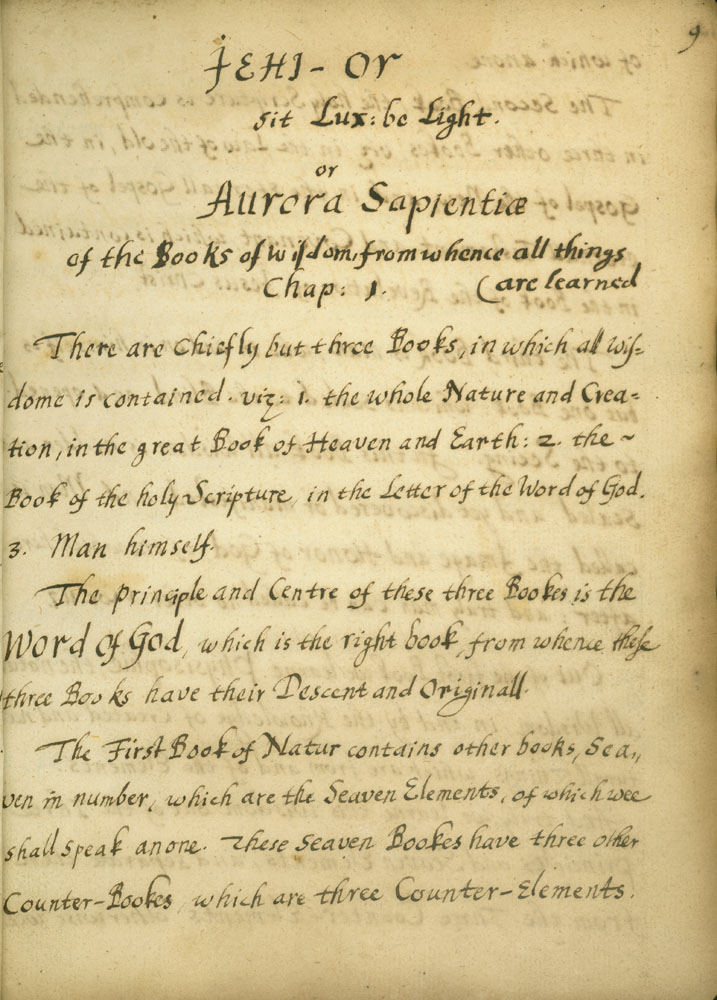 9
JEHI - OR
Sit Lux: be Light.
or
Aurora Sapientiæ
of the Books of Wisdom, from whence all things
Chap: 1. (are learned
There are Chiefly but three Books, in which all wis=
dome is contained. viz: 1. the whole Nature and Crea=
tion, in the great Book of Heaven and Earth: 2. the ~
Book of the holy Scripture, in the Letter of the Word of God.
3. Man himself.
The principle and Centre of these three Bookes is the
Word of God, which is the right book, from whence these
three Books have their Descent and Originall.
The First Book of Natur contains other books, Sea,,
ven in number, which are the Seaven Elements, of which wee
shall speak anone. These Seaven Bookes have three other
Counter-Bookes, which are three Counter-Elements.